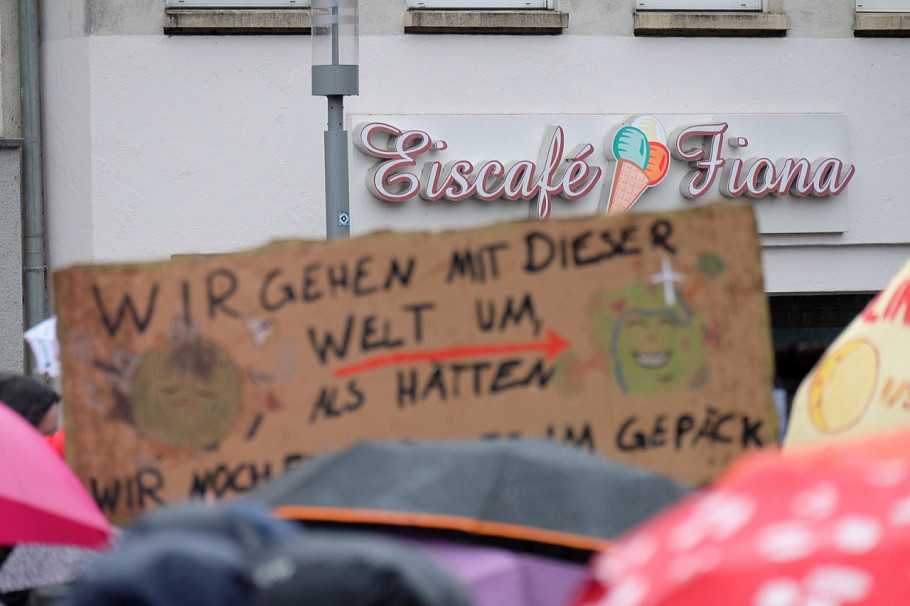 Eiscafé Fiona
WIR GEHEN MIT DIESER
WELT UM,
ALS HÄTTEN
WIR NOCH IM GEPÄCK